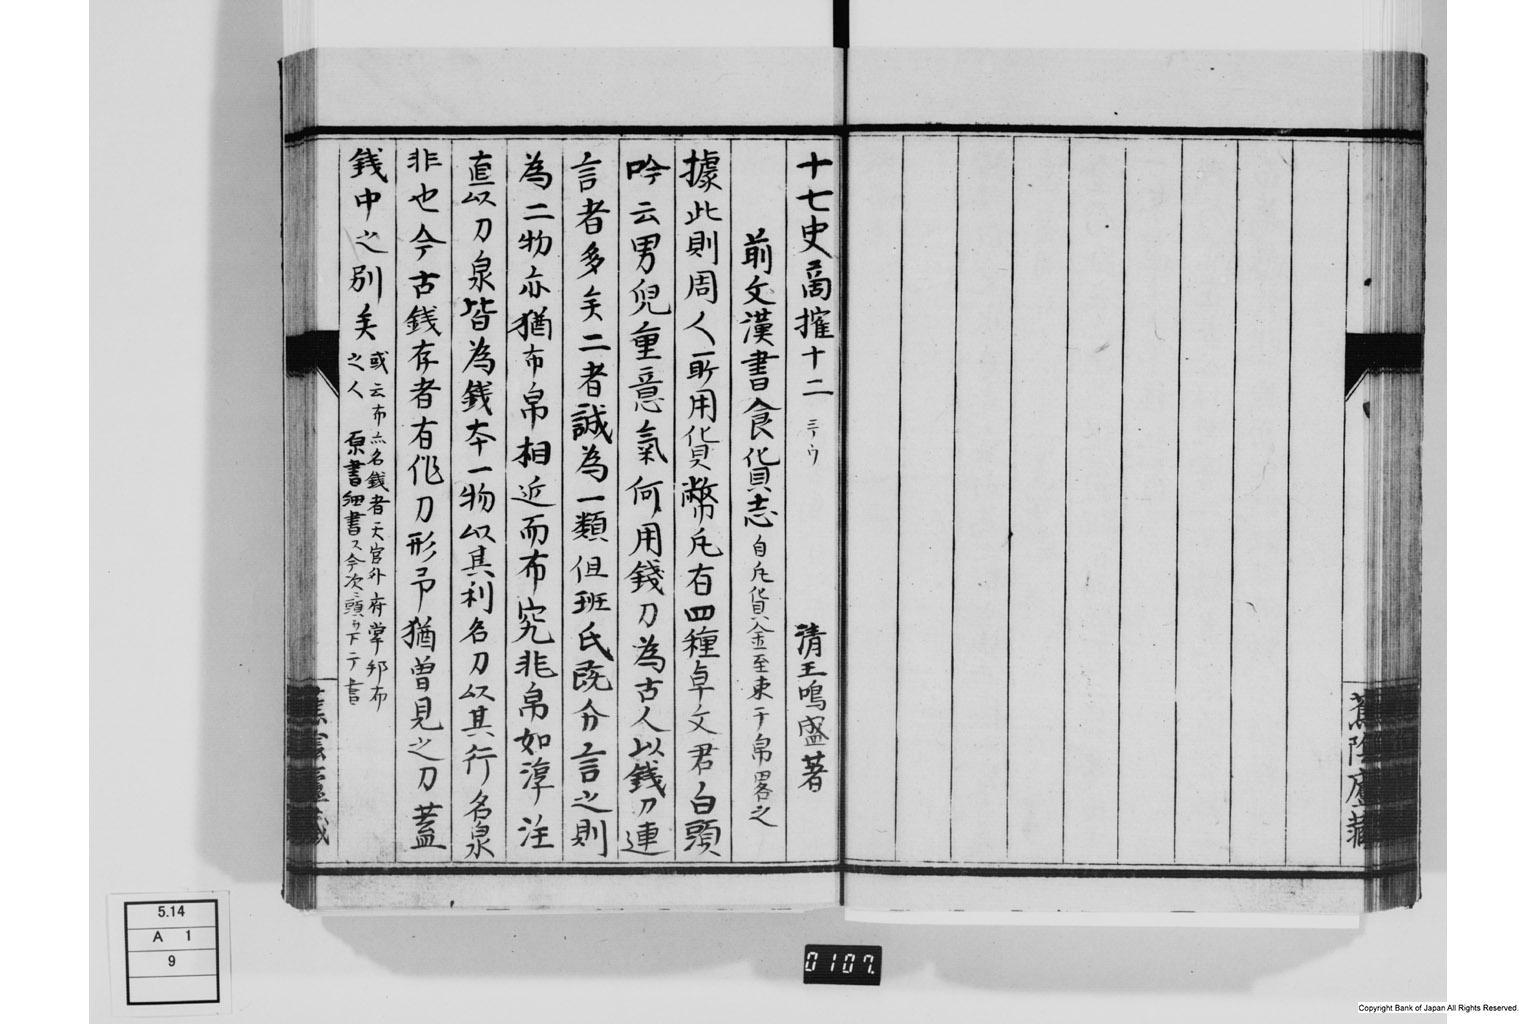 十七史商搉十二 三ウ 清王鳴盛著
前文漢書食貨志 自凡貨金至束于帛畧之
據此則周人所用貨幣凡有四種卓文君白頭
吟云男兒重意氣何用錢刀為古人以錢刀連
言者多矣二者誠為一類但班氏既分言之則
為二物亦猶布帛相近而布究非帛如淳注
直以刀泉皆為錢本一物以其利名刀以其行名泉
非也今古錢存者有作刀形予猶曾見之刀蓋
錢中之別矣 或云布亦名錢者天官外府掌邦布
之人 原書細書ス今次頭ヨリ下テ書
蕉陰廬藏
5.14
A 1
9
0107.
Copyright Bank of Japan All Rights Reserved.